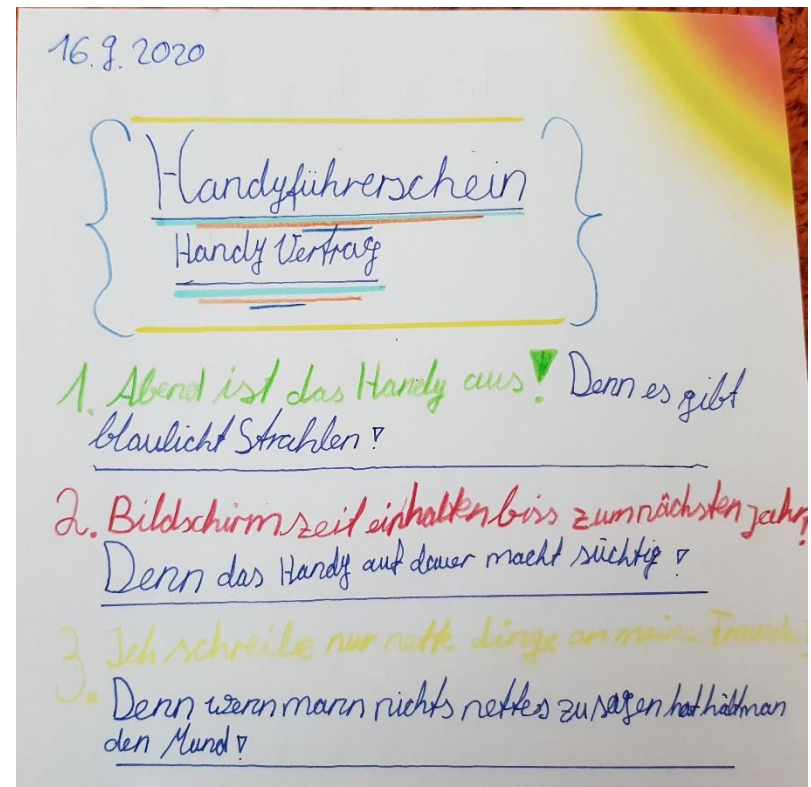 16.9.2020
Handyführerschein
Handy Vertrag
1. Abend ist das Handy aus! Denn es gibt
blaulicht Strahlen!
2. Bildschirmzeit einhalten biss zum nächsten jahr!
Denn das Handy auf dauer macht süchtig!
3. Ich schreibe nur nette dinge an meine Freunde!
Denn wenn mann nichts nettes zu sagen hat hält man
den Mund!